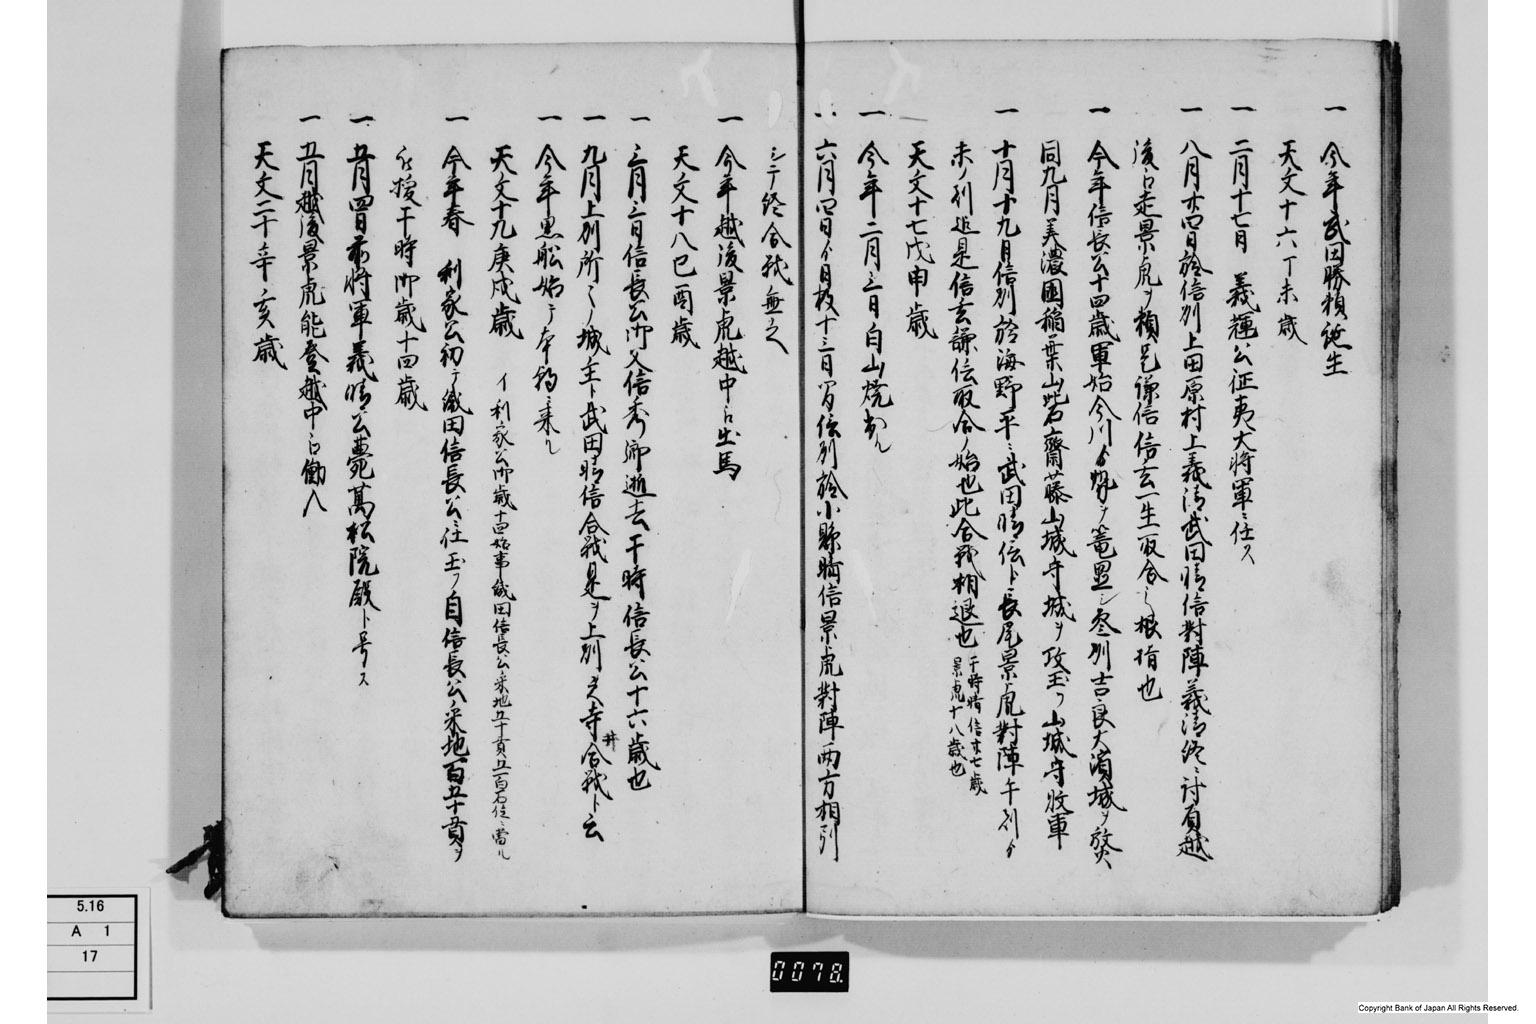 一 今年武田勝頼誕生
天文十六丁未歳
一 二月十七日 義輝公征夷大将軍ニ任ス
一 八月廿四日於信州上田原村上義清武田晴信對陣義清終ニ討負越
後江走景虎ヲ頼是謙信信玄一生取合之根指也
一 今年信長公十四歳軍始今川ゟ 籠置シ参州吉良大濱城ヲ放火
同九月美濃国稲葉山 齋藤山城守城ヲ攻玉フ山城守收軍
一 十月十九日信州於海野平ニ武田晴信ト長尾景虎對陣午刻ゟ
未ノ刻迄是信玄謙信取合ノ始也此合戦相退也 干時晴信廿七歳
景虎十八歳也
天文十七戊申歳
一 今年二月三日白山焼出ル
一 六月四日ゟ同月十三日マテ信州於小縣晴信景虎對陣両方相引
シテ終合戦無之
一 今年越後景虎越中江出馬
天文十八己酉歳
一 三月三日信長公御父信秀卿逝去干時信長公十六歳也
一 九月上州所々ノ城主ト武田晴信合戦是ヲ上州 寺井合戦ト云
一 今年黒船始テ 来ル
天文十九庚戌歳 イ利家公御歳十四始事織田信長公采地五十貫五百石位ニ當ル
一 今年春 利家公初テ織田信長公ニ仕玉フ自信長公采地百五十貫ヲ
被授干時御歳十四歳
一 五月四日前将軍義晴公薨萬松院殿ト号ス
一 五月越後景虎能登越中江働入
天文二十辛亥歳
5.16
A 1
17
0078.
Copyright Bank of Japan All Rights Reserved.